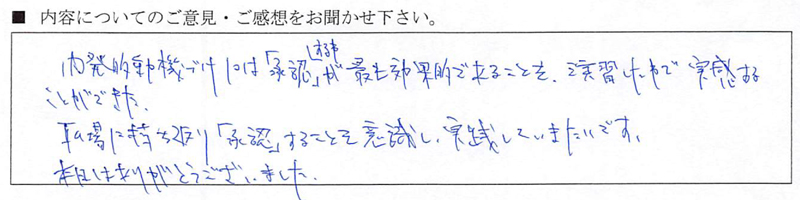 ■ 内容についてのご意見・ご感想をお聞かせ下さい。
内発的動機づけには「承認」が最も効果的であることを、演習の中で実感する
ことができた。
職場に持ち帰り「承認」することを意識し、実践していきたいです。
本日はありがとうございました。